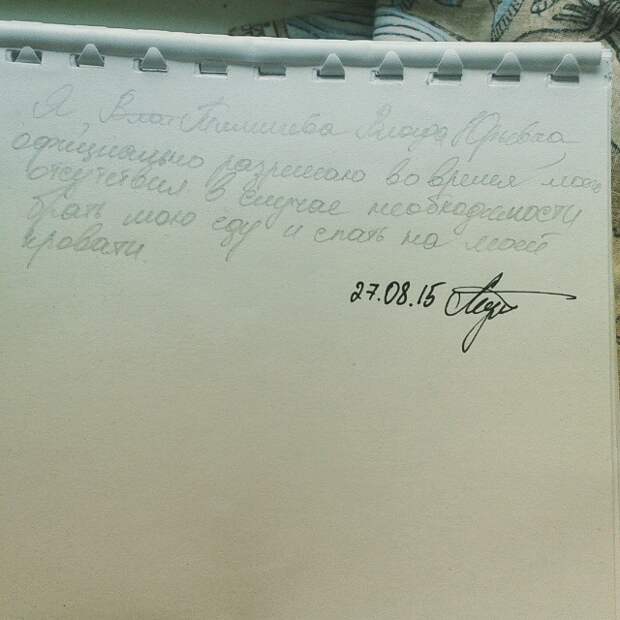 Я, Влада Юрьевна
официально разрешаю во время моего
отсутствия в случае необходимости
брать мою еду и спать на моей
кровати.
27.08.15